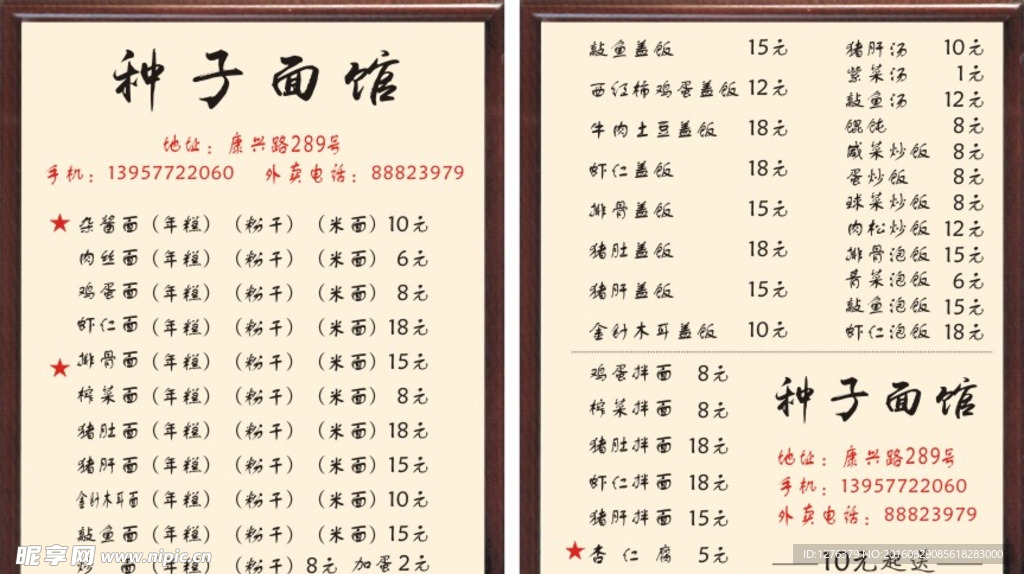 种子面馆
地址：康兴路289号
手机：13957722060 外卖电话：88823979
★ 杂酱面（年糕）（粉干）（米面）10元
肉丝面（年糕）（粉干）（米面）6元
鸡蛋面（年糕）（粉干）（米面）8元
虾仁面（年糕）（粉干）（米面）18元
★ 排骨面（年糕）（粉干）（米面）15元
榨菜面（年糕）（粉干）（米面）8元
猪肚面（年糕）（粉干）（米面）18元
猪肝面（年糕）（粉干）（米面）15元
金针木耳面（年糕）（粉干）（米面）10元
敲鱼面（年糕）（粉干）（米面）15元
炒 面（年糕）（粉干）8元 加蛋2元
昵享网 www.nipic.cn
敲鱼盖饭 15元
西红柿鸡蛋盖饭 12元
牛肉土豆盖饭 18元
虾仁盖饭 18元
排骨盖饭 15元
猪肚盖饭 18元
猪肝盖饭 15元
金针木耳盖饭 10元
猪肝汤 10元
紫菜汤 1元
敲鱼汤 12元
馄饨 8元
咸菜炒饭 8元
蛋炒饭 8元
球菜炒饭 8元
肉松炒饭 12元
排骨泡饭 15元
青菜泡饭 6元
敲鱼泡饭 15元
虾仁泡饭 18元
鸡蛋拌面 8元
榨菜拌面 8元
猪肚拌面 18元
虾仁拌面 18元
猪肝拌面 15元
★ 杏仁腐 5元
种子面馆
地址：康兴路289号
手机：13957722060
外卖电话：88823979
10元起送